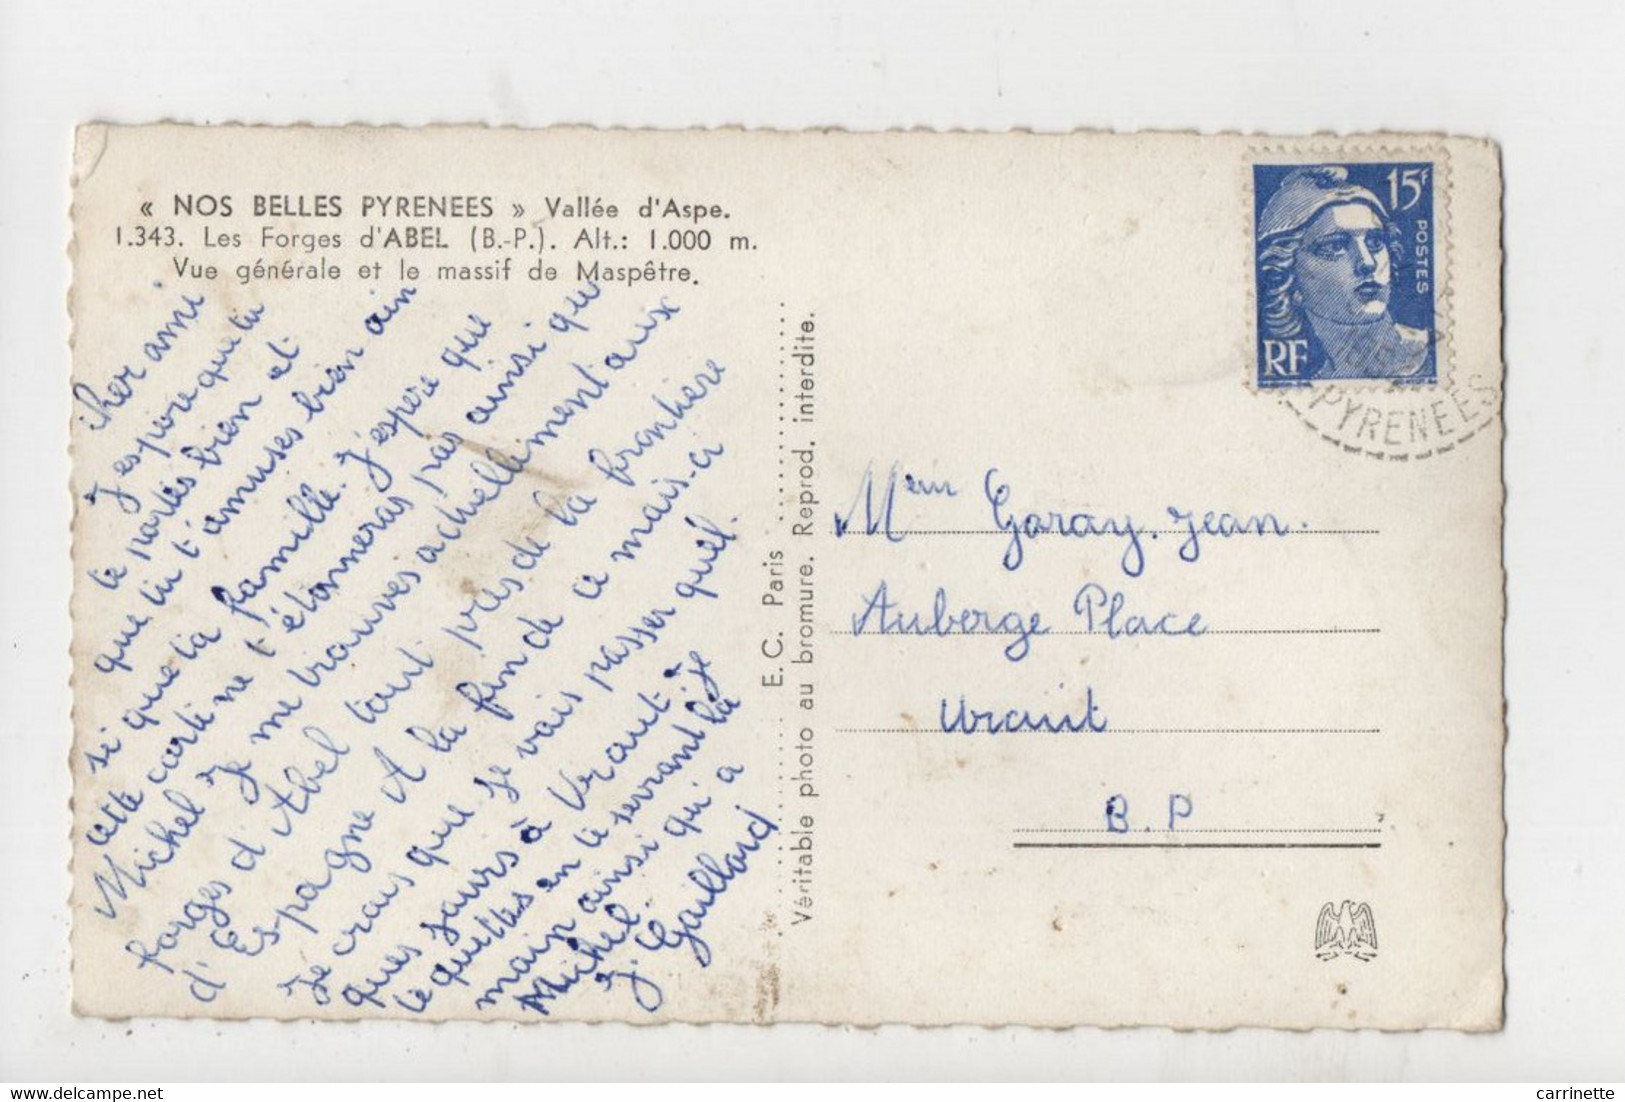 « NOS BELLES PYRENEES » Vallée d'Aspe.
1.343. Les Forges d'ABEL (B.-P.). Alt.: 1.000 m.
Vue générale et le massif de Maspêtre.
cher ami
J'espère que tu
te portes bien et
que tu t'amuses bien ain
si que ta famille. J'espère que
cette carte ne t'étonneras pas ainsi que
Michel Je me trouves actuellement aux
forges d'Abel tout près de la frontière
d'Espagne A la fin de ce mois-ci
Je crois que je vais passer quel.
ques jours à Uraut. Je
te quittes en te serrant la
main ainsi qui a
Michel.
J. Gaillard
E. C. Paris
Véritable photo au bromure. Reprod. interdite.
15F
POSTES
RF
PYRENEES
Garay. Jean.
Auberge Place
Uraut
B. P
carrinette